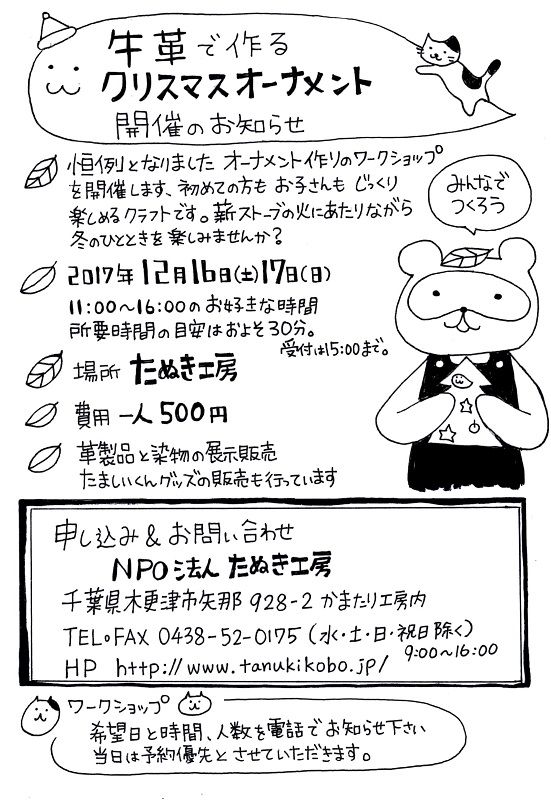 牛革で作る
クリスマスオーナメント
開催のお知らせ
恒例となりました オーナメント作りのワークショップ
を開催します、初めての方も お子さんも じっくり
楽しめるクラフトです。薪ストーブの火にあたりながら
冬のひとときを楽しみませんか？
みんなで
つくろう
2017年 12月16日(土)17日(日)
11:00〜16:00のお好きな時間
所要時間の目安はおよそ30分。
受付は15:00まで。
場所 たぬき工房
費用 一人 500円
革製品と染物の展示販売
たましいくんグッズの販売も行っています
申し込み & お問い合わせ
NPO法人 たぬき工房
千葉県木更津市矢那 928-2 かまたり工房内
TEL・FAX 0438-52-0175 (水・土・日・祝日除く)
9:00〜16:00
HP http://www.tanukikobo.jp/
ワークショップ
希望日と時間、人数を電話でお知らせ下さい
当日は予約優先とさせていただきます。